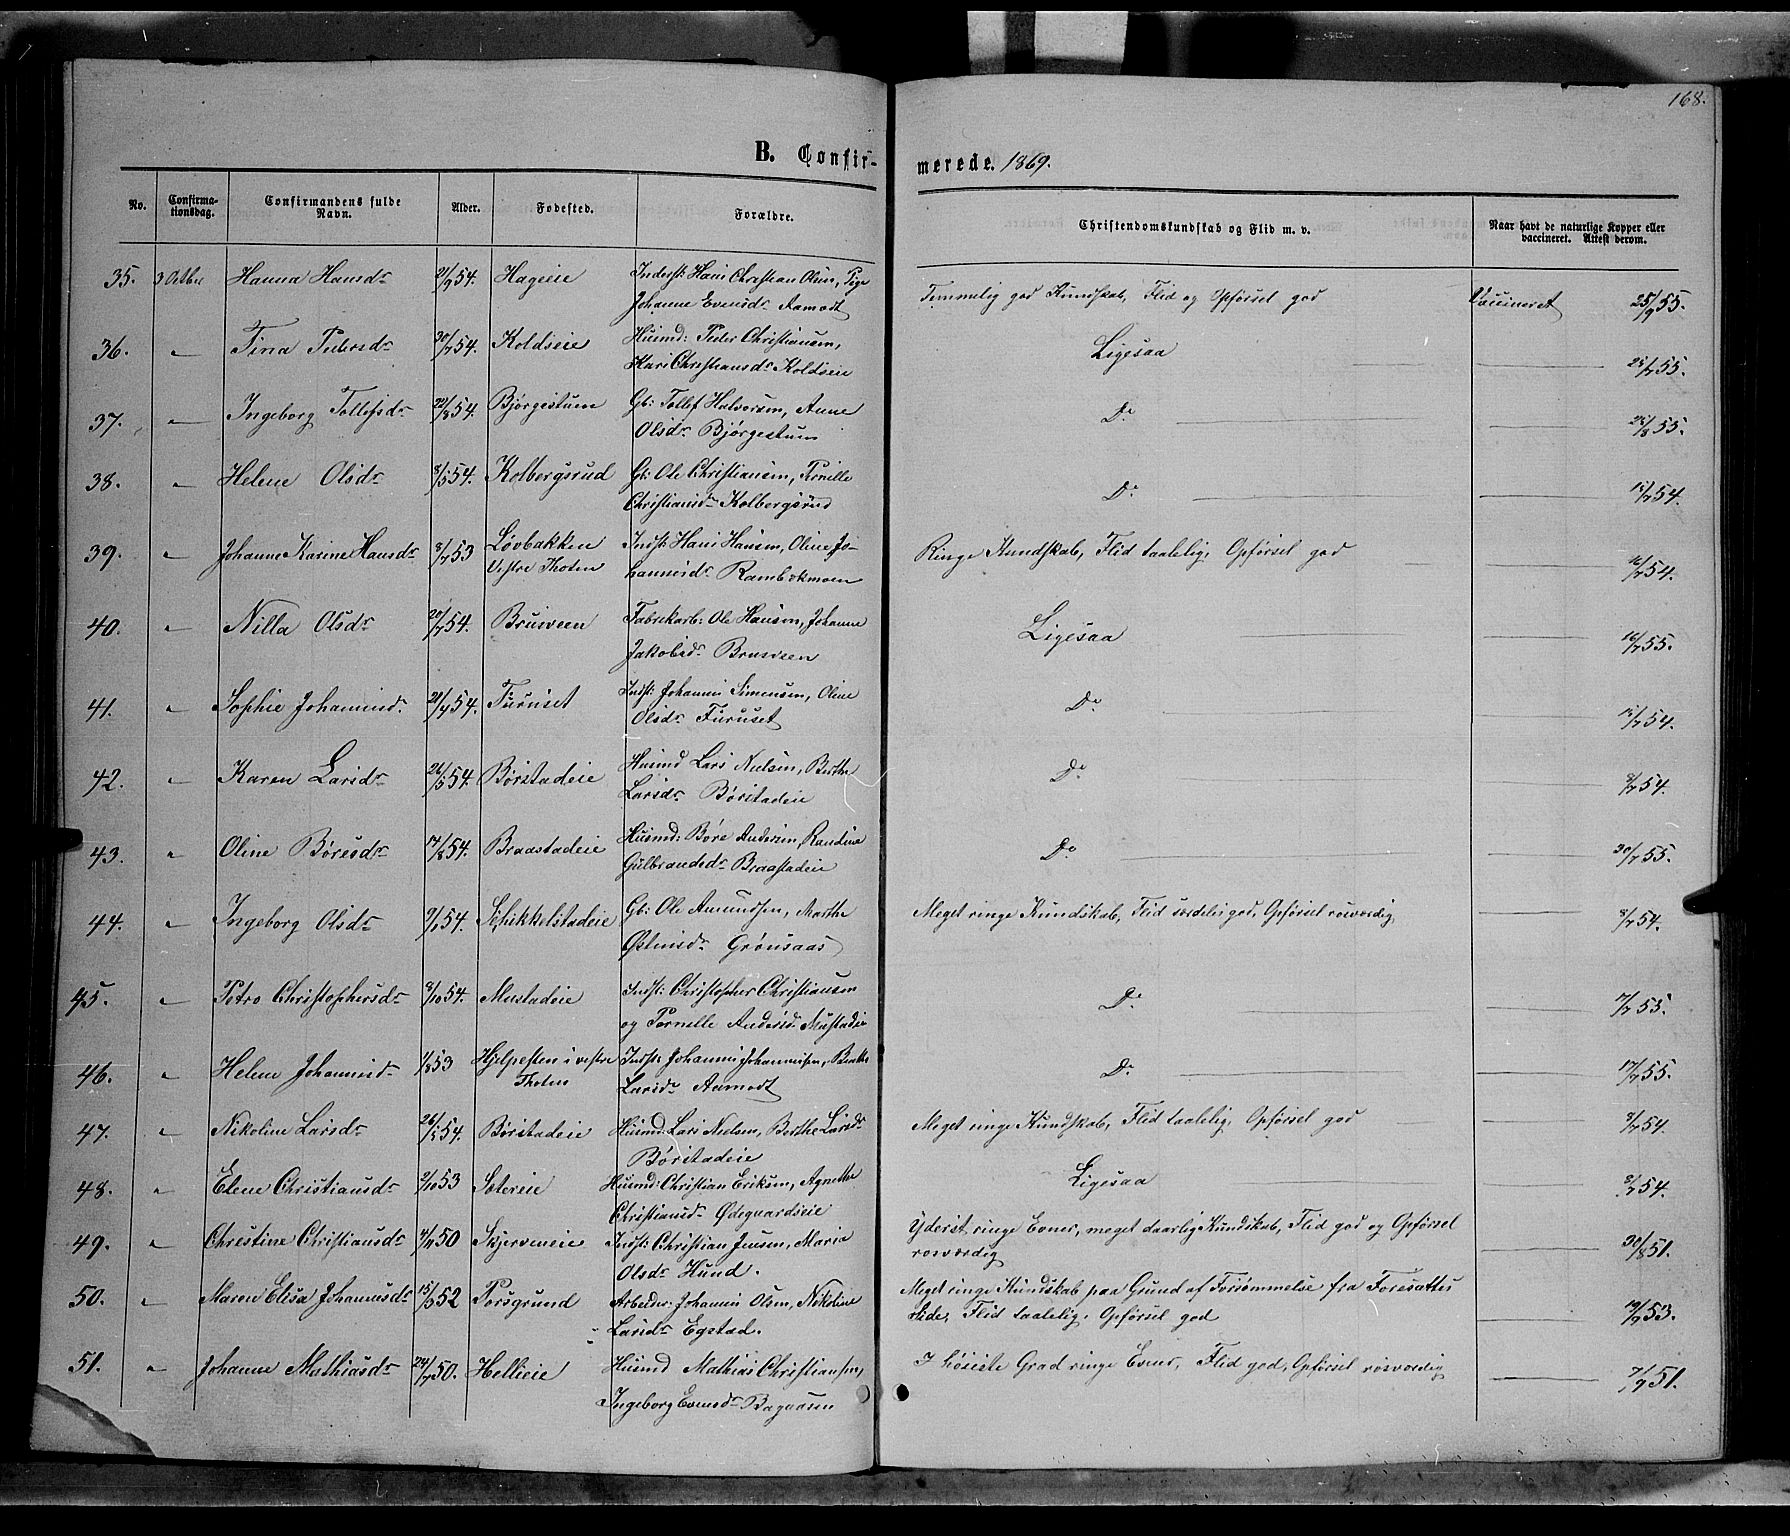 168.
B. Confir- merede. 1869.
No. Confirma- Confirmandens fulde Alder. Fødested. Forældre. Christendomskundskab og Flid m. v. Naar havt de naturlige Kopper eller
tionsdag. Navn. vaccineret. Attest derom.
35. 3 Octbr Hanna Hansdr 21/9 54. Hageeie Inderst: Hans Christian Olsen, Pige Temmelig god Kundskab, Flid og Opførsel god Vaccineret 25/9 55.
Johanne Evensdr Aamodt
36. " Tina Pedersdr 30/7 54. Koldseie Husmd: Peder Christiansen, Ligesaa 25/7 55.
Kari Christiansdr Koldseie
37. " Ingeborg Tollefsdr 22/8 54. Bjørgestuen Gb: Tollef Halvorsen, Anne Do 25/8 55.
Olsdr Bjørgestuen
38. " Helene Olsdr 8/5 54. Kolbergsrud Gb: Ole Christiansen, Pernille Do 15/7 54.
Christiansdr Kolbergsrud
39. " Johanne Karine Hansdr 8/7 53 Løvbakken Indst: Hans Hansen, Oline Jo- Ringe Kundskab, Flid taalelig, Opførsel god 16/7 54.
Vestre Thoten hannesdr Rambekmoen
40. " Nilla Olsdr 20/7 54. Brusveen Fabrikarb: Ole Hansen, Johanne Ligesaa 16/7 55.
Jakobsdr Brusveen
41. " Sophie Johannesd. 21/4 54. Furuset Indst: Johannes Simensen, Oline Do 15/7 54.
Olsdr Furuset
42. " Karen Larsdr 26/5 54. Børstadeie Husmd Lars Nielsen, Berthe Do 8/7 54.
Larsdr Børstadeie
43. " Oline Børesdr 17/8 54. Braastadeie Husmd: Børe Andersen, Randine Do 30/7 55.
Gulbrandsdr Braastadeie
44. " Ingeborg Olsdr 9/1 54. Schikkelstadeie Gb: Ole Amundsen, Marthe Meget ringe Kundskab, Flid særdeles god, Opførsel rosværdig, 8/7 54.
Østensdr Grønsaas
45. " Petro Christophersdr 8/10 54. Mustadeie Indst: Christopher Christiansen Do 17/7 55.
og Pernelle Andersd. Mustadeie
46. " Helene Johannesd 1/8 53 Hjelpesten i vestre Indst: Johannes Johannessen, Berthe Do 17/7 55.
Thoten Larsdr Aamodt
47. " Nikoline Larsdr 26/5 54. Børstadeie Husmd: Lars Nielsen, Berthe Larsdr Meget ringe Kundskab, Flid taalelig, Opførsel god 8/7 54.
Børstadeie
48. " Elene Christiansdr 2/10 53 Sætereie Husmd: Christian Eriksen, Agnethe Ligesaa 8/7 54.
Christiansd. Ødegaardseie
49. " Chrestine Christiansdr 4/11 50 Skjerveneie Indst: Christian Jensen, Maria Yderst ringe Evner, meget daarlig Kundskab, Flid god og Opførsel 30/8 51.
Olsdr Hund. rosværdig
50. " Maren Elisa Johannesdr 15/3 52 Porsgrund Arbeider: Johannes Olsen, Nikoline Meget ringe Kundskab paa Grund af Forsømmelse fra Foresattes 19/9 53.
Larsdr Egstad. Side, Flid taalelig, Opførsel god
51. " Johanne Mathiasdr 24/7 50. Hellieie Husmd Mathias Christiansen, I høieste Grad ringe Evner, Flid god, Opførsel rosværdig 7/9 51.
Ingeborg Evensdr Bagaasen